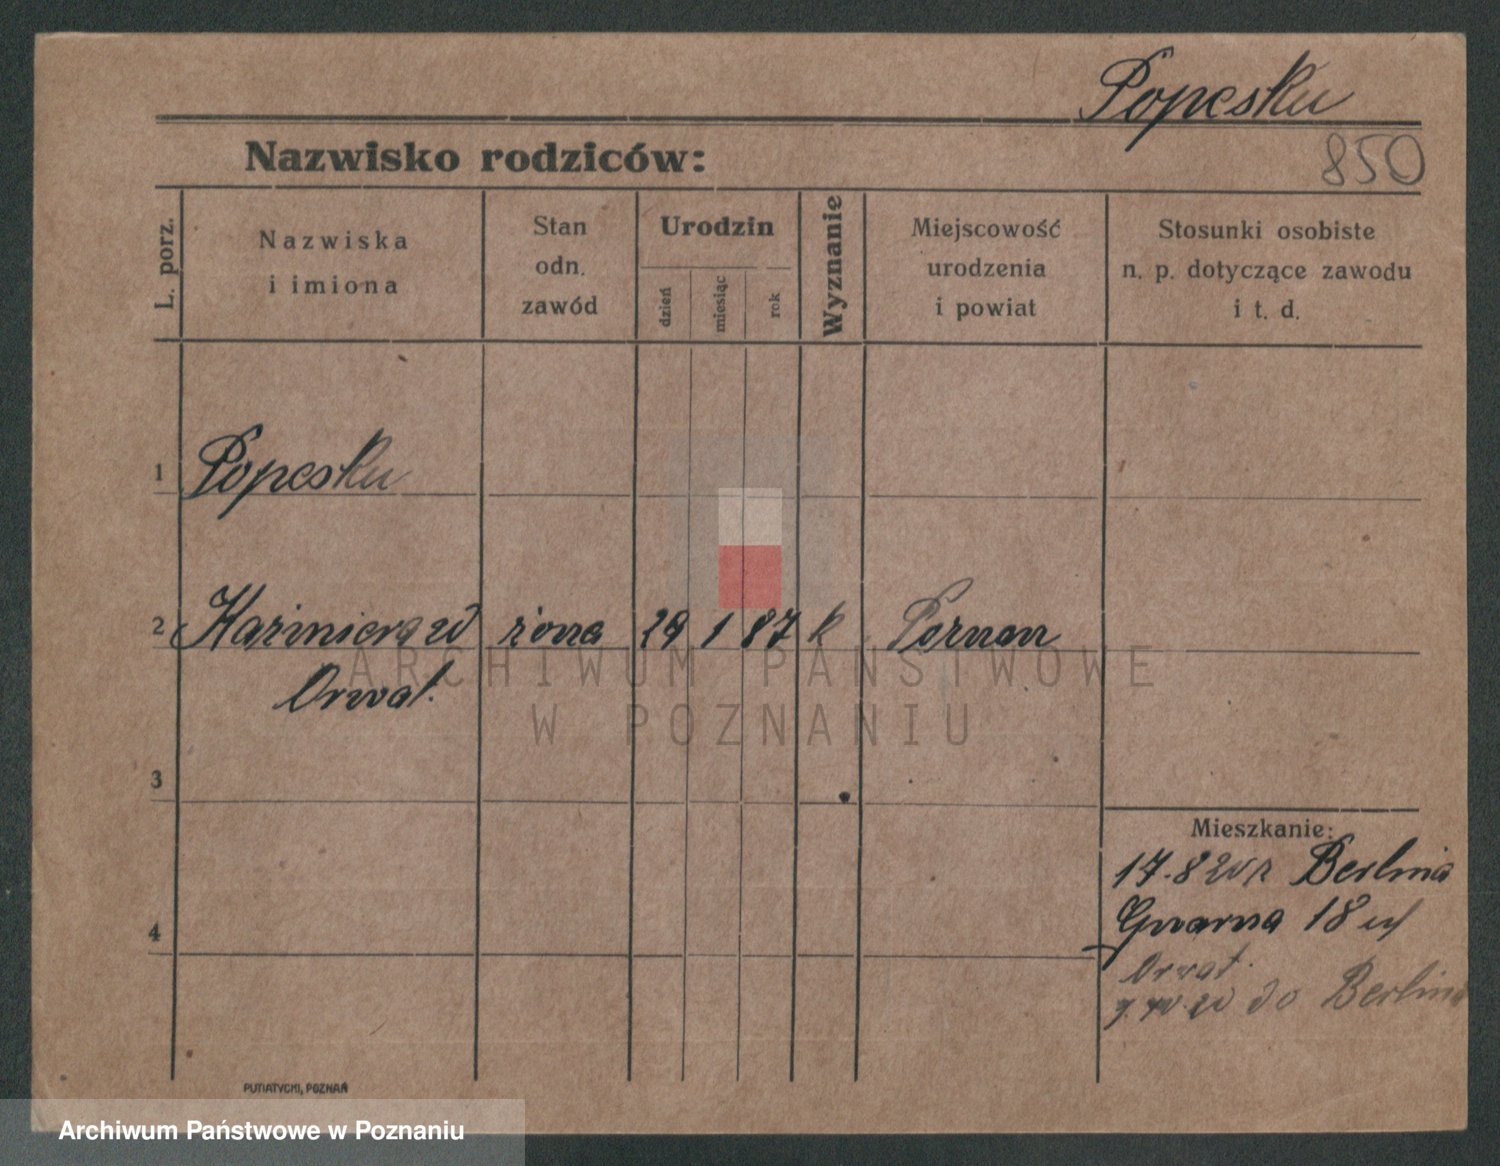 Popesku
Nazwisko rodziców:
850
L. porz.
Nazwiska
i imiona
Stan
odn.
zawód
Urodzin
dzień
miesiąc
rok
Wyznanie
Miejscowość
urodzenia
i powiat
Stosunki osobiste
n. p. dotyczące zawodu
i t. d.
1 Popesku
2 Kazimiera żona 29 1 87 k Poznan
Orwat.
ARCHIWUM PAŃSTWOWE
W POZNANIU
3
Mieszkanie:
17.8 20 z Berlina
4 Gwarna 18
Orwat.
20 do Berlina
PUTIATYCKI, POZNAŃ
Archiwum Państwowe w Poznaniu